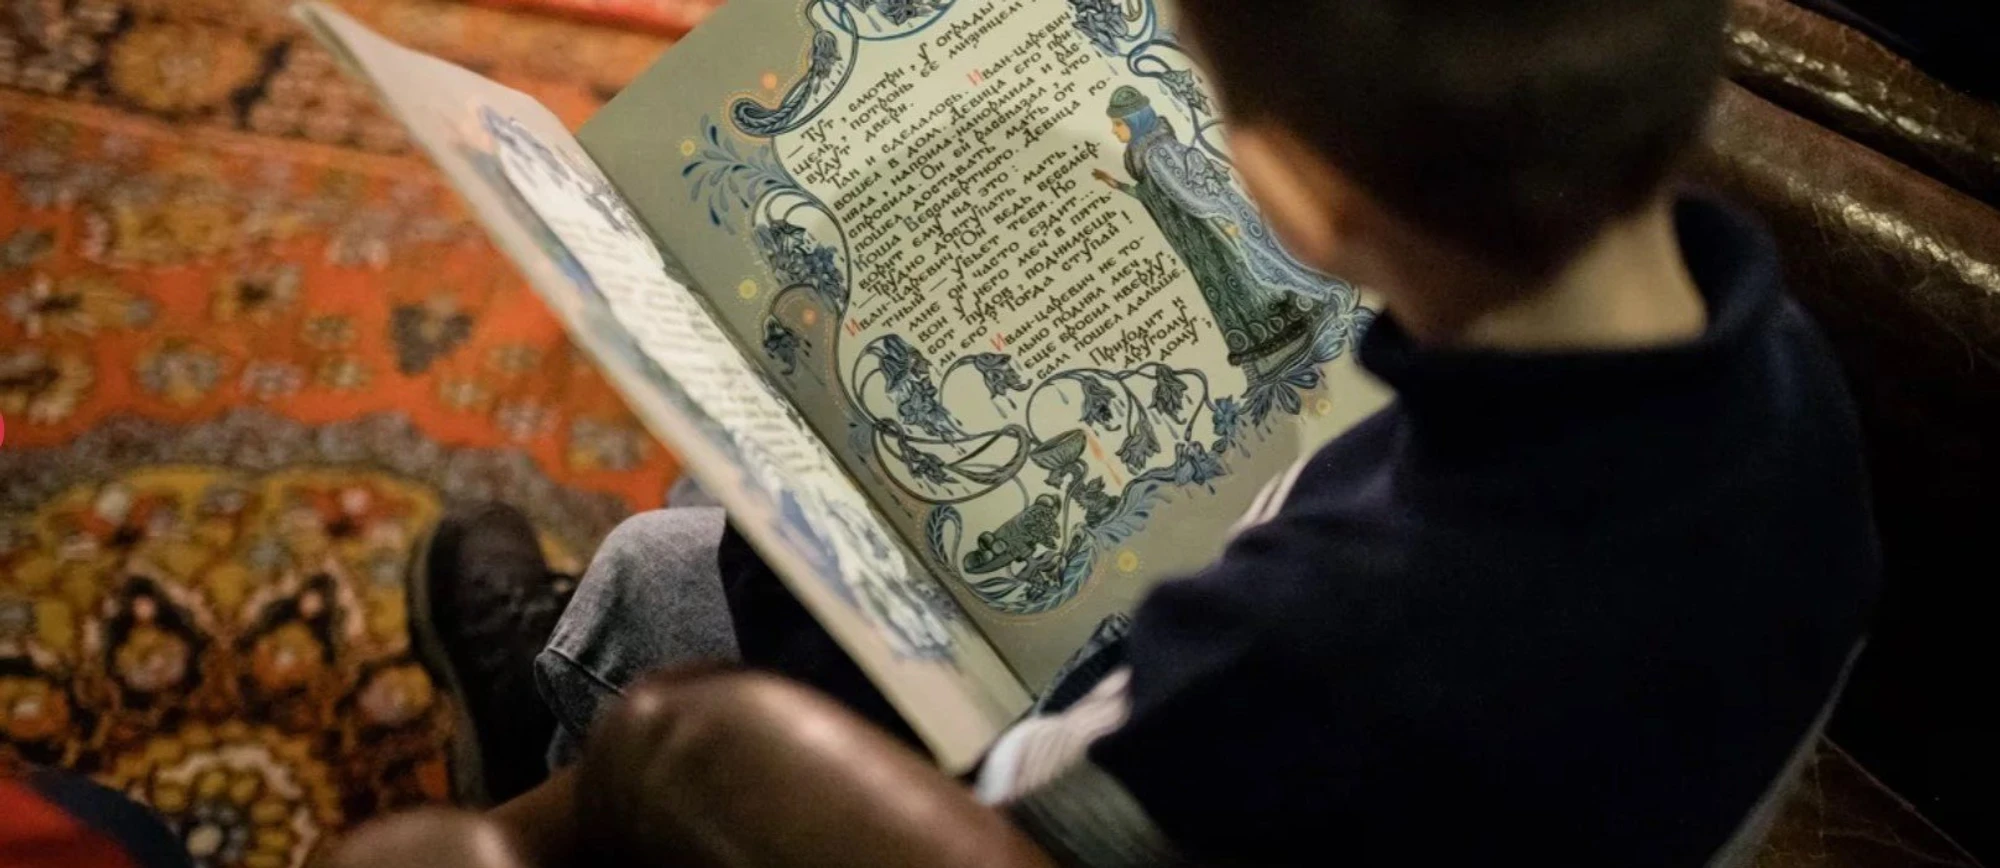 у ограды
— Тут, смотри, ее мизинцем
щель, потронь
будут двери.
Так и сделалось. Иван-царевич
вошел в дом. Девица его при-
няла, напоила-накормила и рас-
спросила. Он ей рассказал, что
пошел доставать мать от
Коша Бессмертного. Девица го-
ворит ему на это:
— Трудно доступать мать,
Иван-царевич! Он ведь бессмер-
тный — убьет тебя. Ко
мне он часто ездит...
вон у него меч в пять
сот пудов, поднимешь
ли его? Тогда ступай!
Иван-царевич не то-
лько поднял меч,
еще бросил кверху;
сам пошел дальше.
Приходит к
другому
дому;